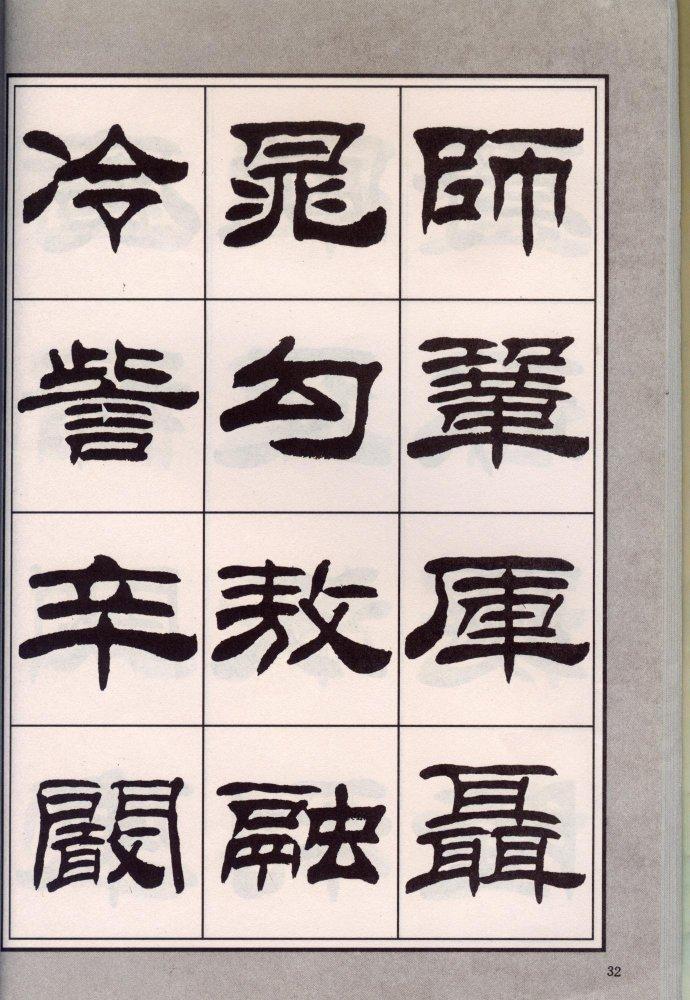 師鞏厙聶
晁勾敖融
冷訾辛闞
32